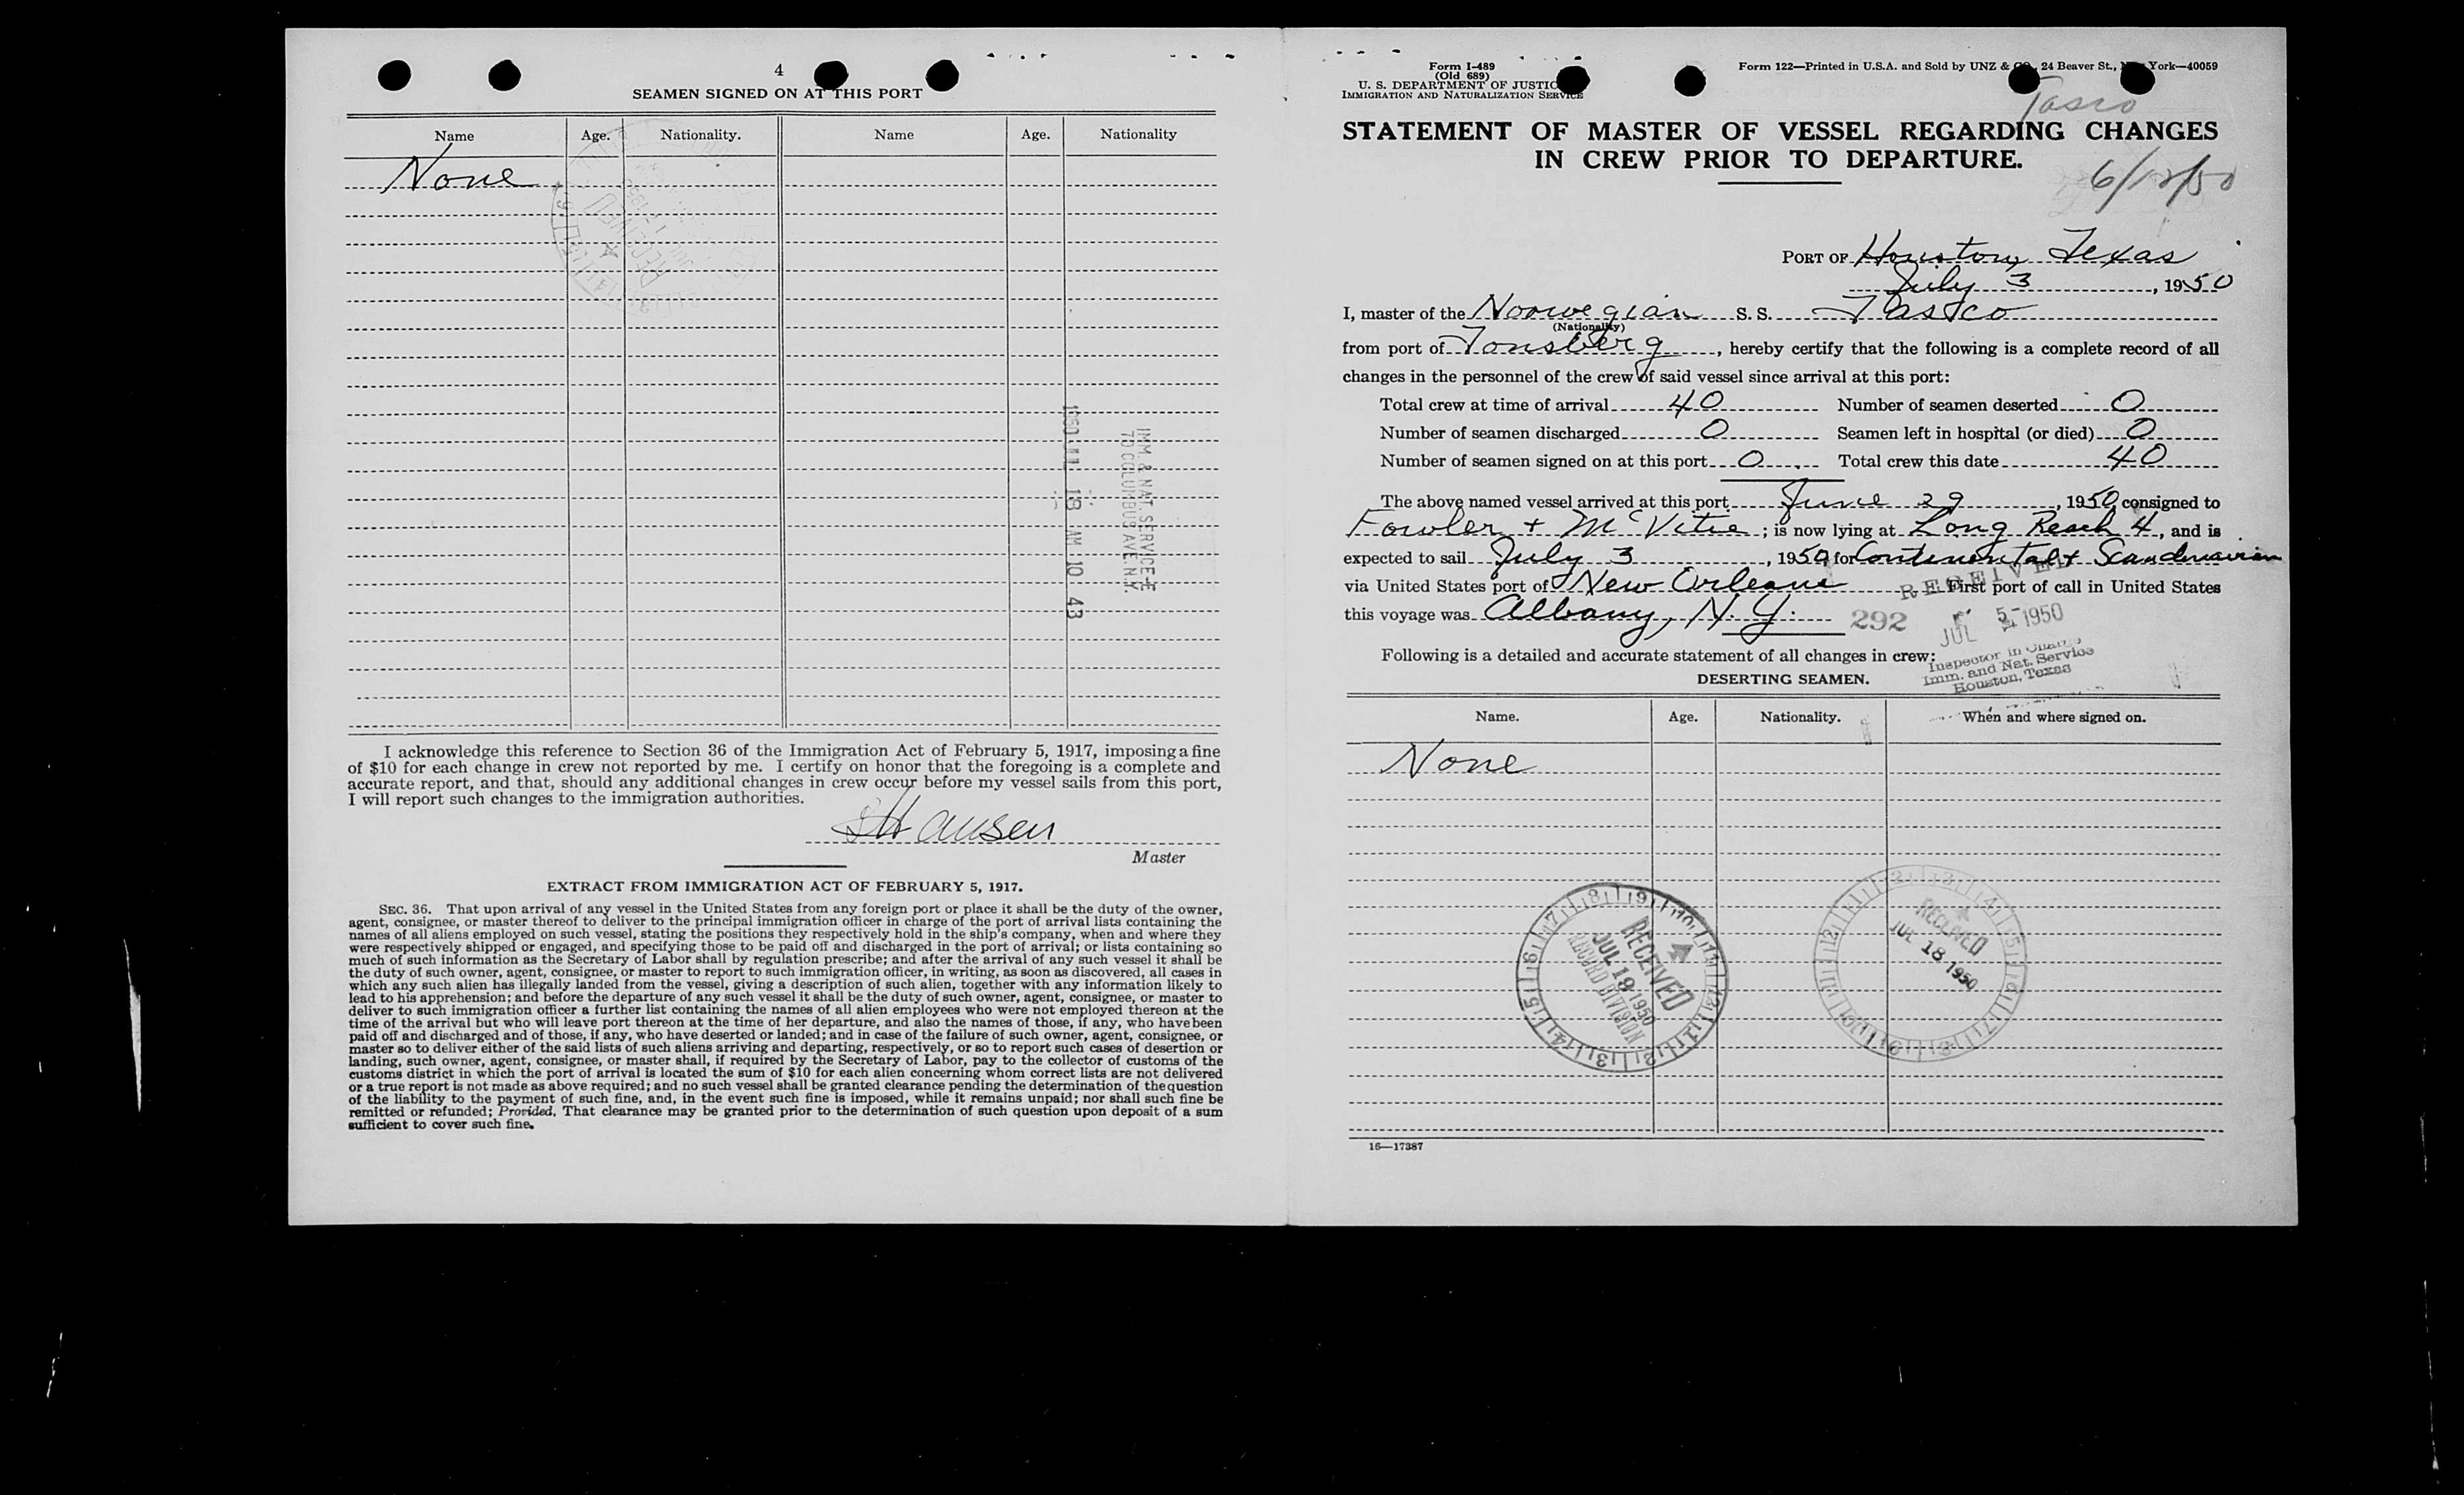 4
SEAMEN SIGNED ON AT THIS PORT
Name Age. Nationality. Name Age. Nationality
None
RECEIVED
IMM. & NAT. SERVICE-E
70 COLUMBUS AVE. N.Y.
1950 JUL 18 AM 10 43
I acknowledge this reference to Section 36 of the Immigration Act of February 5, 1917, imposing a fine
of $10 for each change in crew not reported by me. I certify on honor that the foregoing is a complete and
accurate report, and that, should any additional changes in crew occur before my vessel sails from this port,
I will report such changes to the immigration authorities.
Hansen
Master
EXTRACT FROM IMMIGRATION ACT OF FEBRUARY 5, 1917.
SEC. 36. That upon arrival of any vessel in the United States from any foreign port or place it shall be the duty of the owner,
agent, consignee, or master thereof to deliver to the principal immigration officer in charge of the port of arrival lists containing the
names of all aliens employed on such vessel, stating the positions they respectively hold in the ship's company, when and where they
were respectively shipped or engaged, and specifying those to be paid off and discharged in the port of arrival; or lists containing so
much of such information as the Secretary of Labor shall by regulation prescribe; and after the arrival of any such vessel it shall be
the duty of such owner, agent, consignee, or master to report to such immigration officer, in writing, as soon as discovered, all cases in
which any such alien has illegally landed from the vessel, giving a description of such alien, together with any information likely to
lead to his apprehension; and before the departure of any such vessel it shall be the duty of such owner, agent, consignee, or master to
deliver to such immigration officer a further list containing the names of all alien employees who were not employed thereon at the
time of the arrival but who will leave port thereon at the time of her departure, and also the names of those, if any, who have been
paid off and discharged and of those, if any, who have deserted or landed; and in case of the failure of such owner, agent, consignee, or
master so to deliver either of the said lists of such aliens arriving and departing, respectively, or so to report such cases of desertion or
landing, such owner, agent, consignee, or master shall, if required by the Secretary of Labor, pay to the collector of customs of the
customs district in which the port of arrival is located the sum of $10 for each alien concerning whom correct lists are not delivered
or a true report is not made as above required; and no such vessel shall be granted clearance pending the determination of the question
of the liability to the payment of such fine, and, in the event such fine is imposed, while it remains unpaid; nor shall such fine be
remitted or refunded; Provided, That clearance may be granted prior to the determination of such question upon deposit of a sum
sufficient to cover such fine.
Form I-489
(Old 689)
U. S. DEPARTMENT OF JUSTICE
IMMIGRATION AND NATURALIZATION SERVICE
Form 122—Printed in U.S.A. and Sold by UNZ & CO., 24 Beaver St., New York—40059
Tasco
STATEMENT OF MASTER OF VESSEL REGARDING CHANGES
IN CREW PRIOR TO DEPARTURE.
6/12/50
PORT OF Houston, Texas
July 3, 1950
I, master of the Norwegian S. S. Tasco
(Nationality)
from port of Tonsberg, hereby certify that the following is a complete record of all
changes in the personnel of the crew of said vessel since arrival at this port:
Total crew at time of arrival 40 Number of seamen deserted 0
Number of seamen discharged 0 Seamen left in hospital (or died) 0
Number of seamen signed on at this port 0 Total crew this date 40
The above named vessel arrived at this port June 29, 1950, consigned to
Fowler + McVitie; is now lying at Long Reach 4, and is
expected to sail July 3, 1950, for Continental + Scandinavian
via United States port of New Orleans First port of call in United States
this voyage was Albany, N.Y.
292
RECEIVED
JUL 5-1950
Inspector in Charge
Imm. and Nat. Service
Houston, Texas
Following is a detailed and accurate statement of all changes in crew:
DESERTING SEAMEN.
Name. Age. Nationality. When and where signed on.
None
RECEIVED
JUL 19 1950
RECORD DIVISION
RECEIVED
JUL 18 1950
16—17387